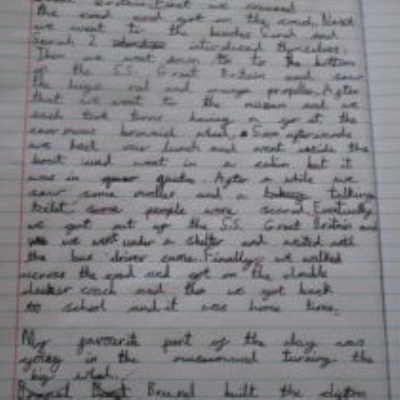 Britain. First we crossed
the road and got on the coach. Next
we went to the benches Sarah and
Sarah 2 introduced themselves.
Then we went down to the bottom
of the S.S. Great Britain and saw
the huge red and orange propeller. After
that we went to the museum and we
each took turns having a go at the
wheel. Soon afterwards
we had our lunch and went inside the
boat and went in a cabin but it
was in quotes. After a while we
saw some and a talking
toilet some people were scared. Eventually
we got out of the S.S. Great Britain and
we went under a shelter and waited until
the bus driver came. Finally we walked
across the road and got on the double
decker coach and we got back
to school and it was home time.
My favourite part of the day was
going in the turning the
big wheel.
Brunel built the